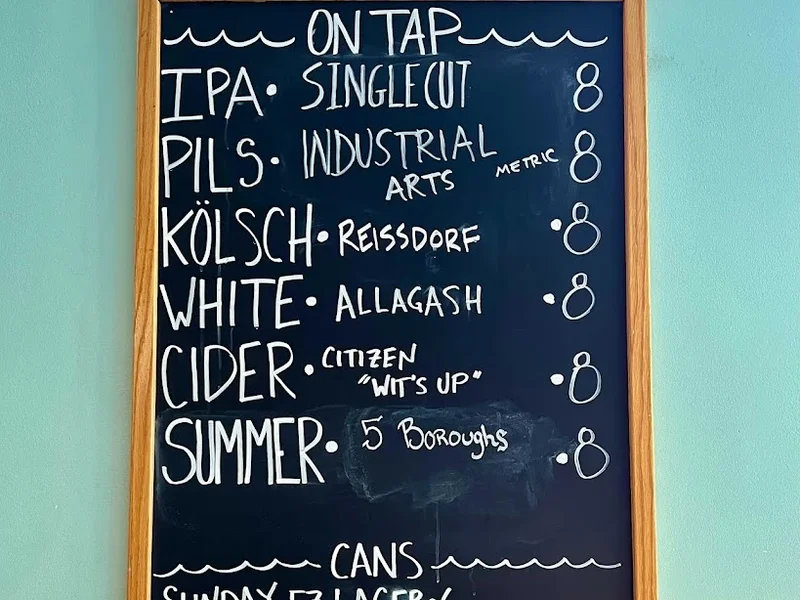 ON TAP
IPA • SINGLECUT 8
PILS • INDUSTRIAL ARTS METRIC 8
KÖLSCH • REISSDORF • 8
WHITE • ALLAGASH • 8
CIDER • CITIZEN "WIT'S UP" • 8
SUMMER • 5 Boroughs • 8
CANS
SUNDAY EZ LAGER • 6